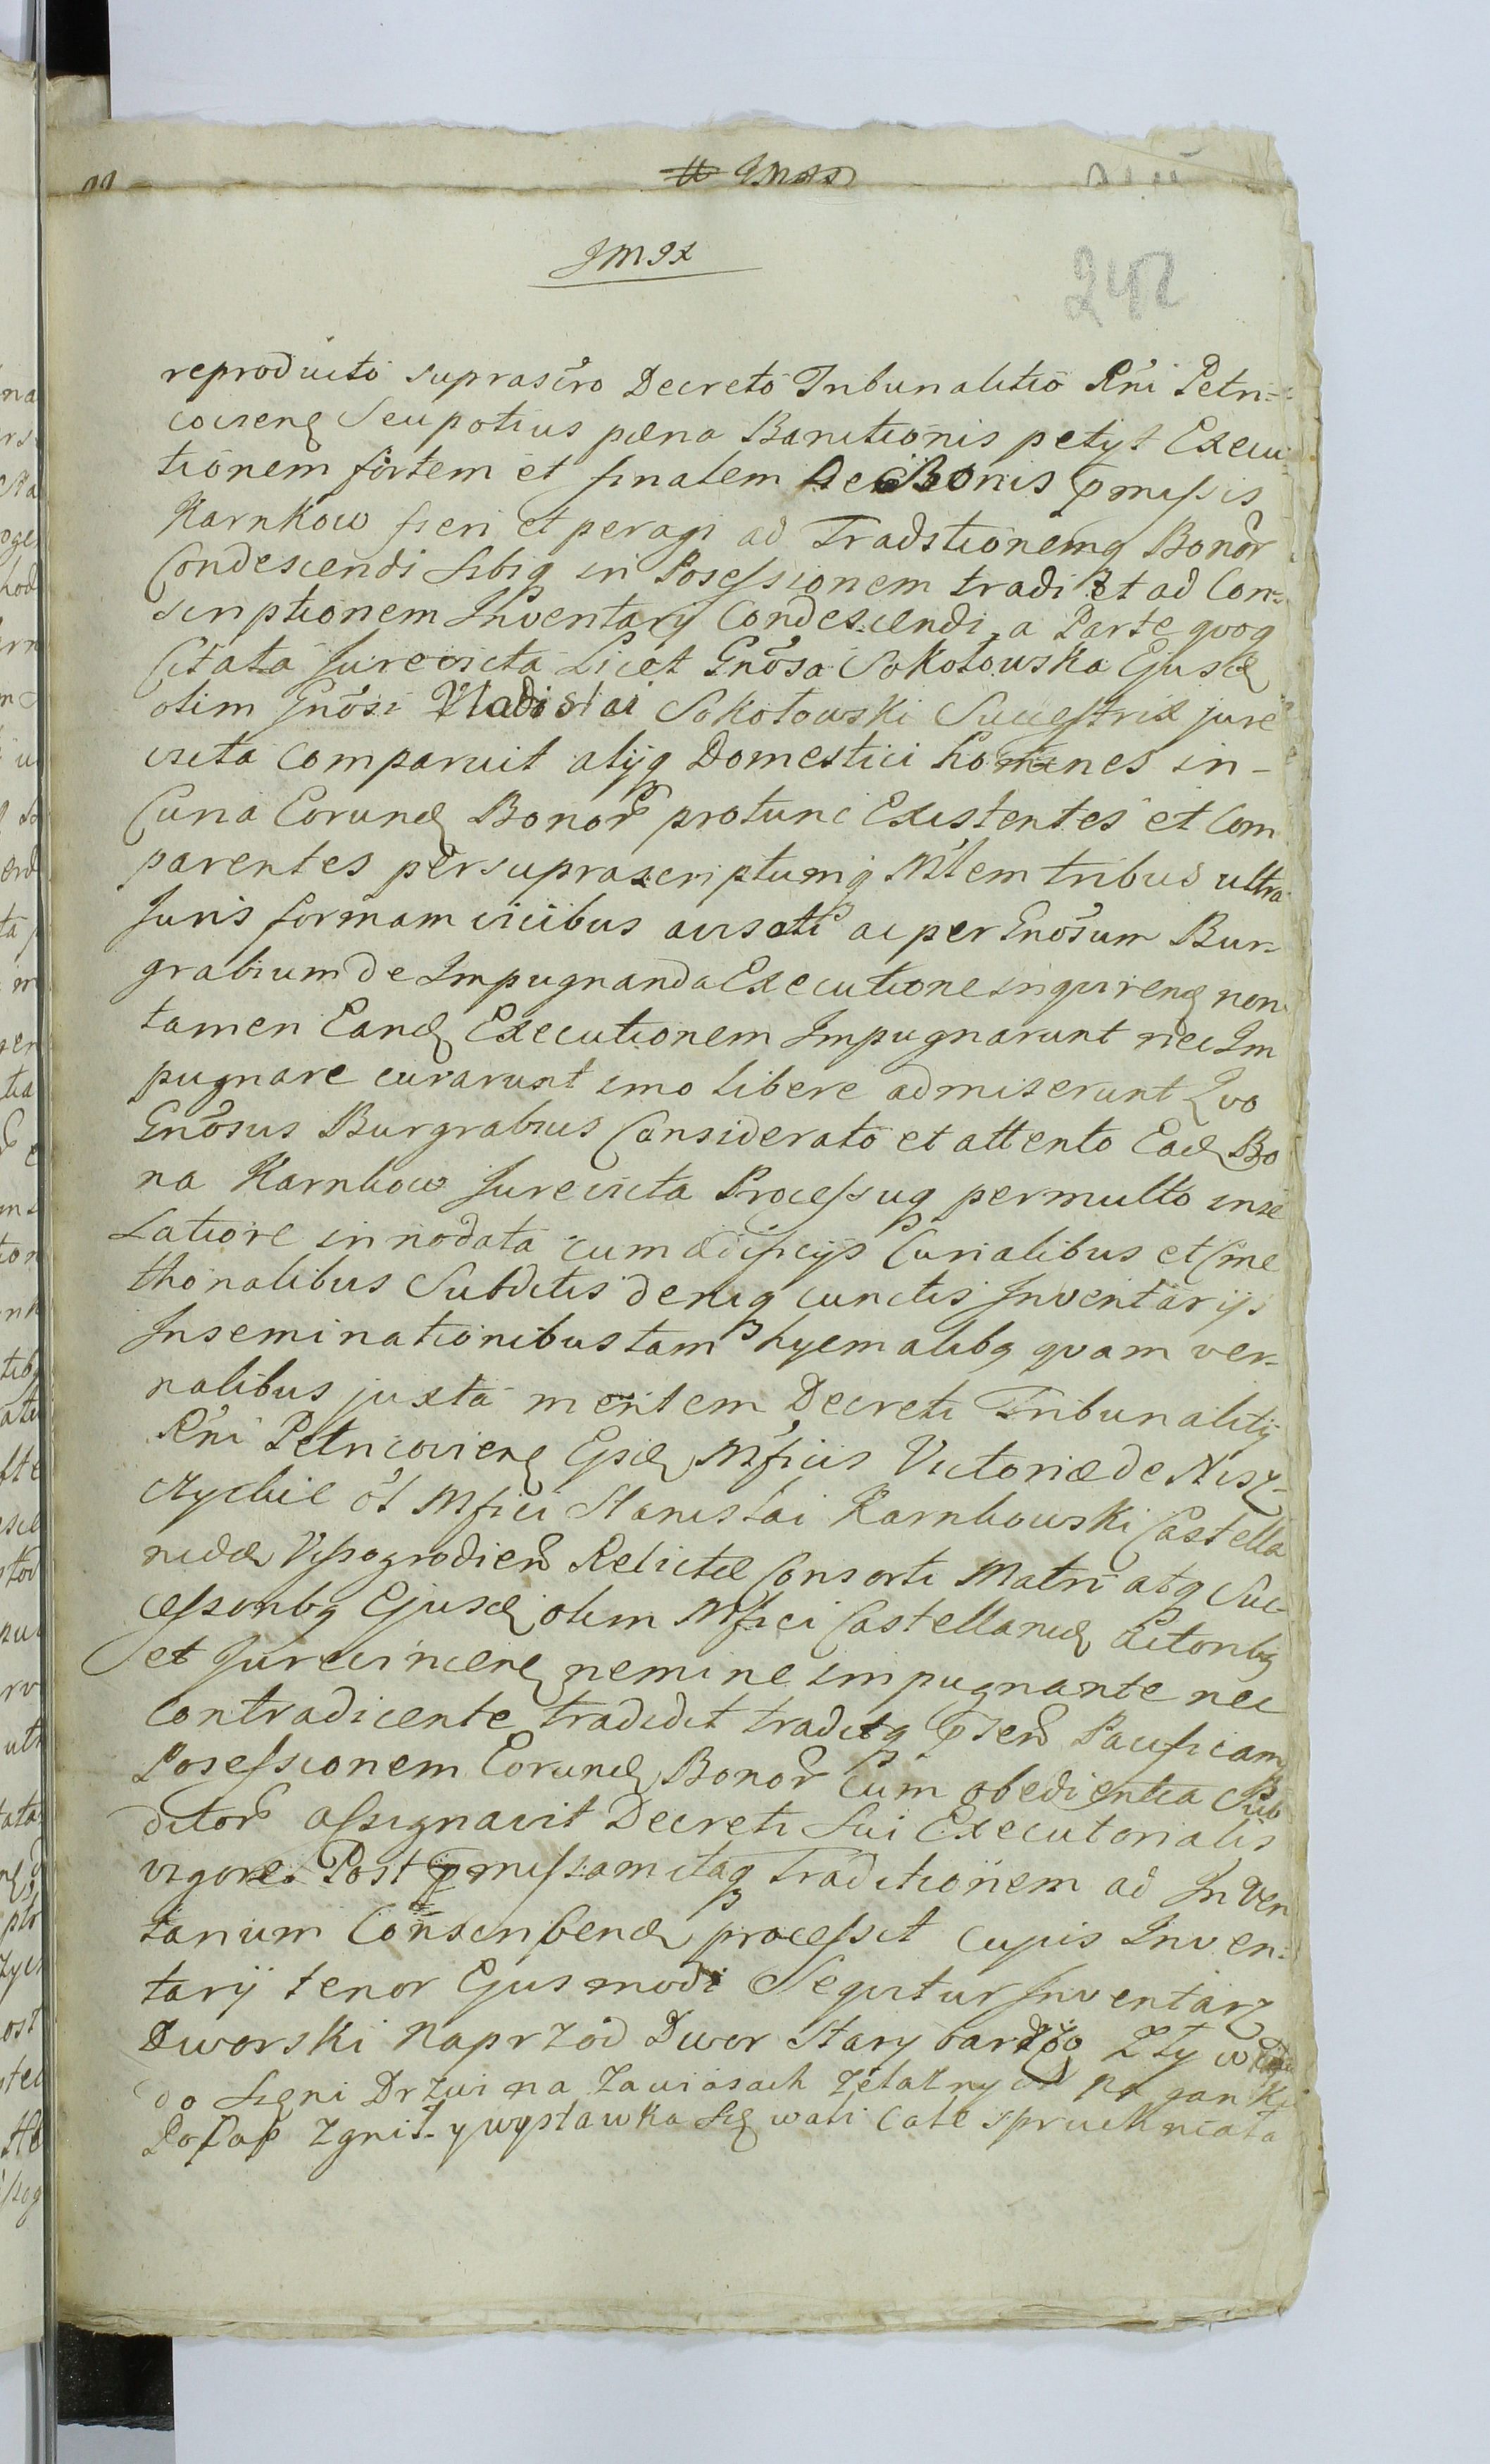 JMJX
242
reproducto suprascro Decreto Tribunalitio Rni Petri=
coviens Seu potius pæna Banitionis petijt Execu
tionem fortem et finalem de Bonis pmissis
Karnkow fieri et peragi ad Tradstionemq Bonor
Condescendi sibiq in Posessionem tradi et ad Con=
scriptionem Inventarij Condescendi a Parte qvoq
Citata Jurevicta Licet Gnosa Sokołowska Ejusd
olim Gnosi Vladislai Sokołowski Succestrix jure
victa comparuit alijq Domestici homines in-
Curia Eorund Bonor protunc Existentes et Com
parentes per suprascriptumq Mlem tribus ultra
Juris formam vicibus avisati ac per Gnosum Bur-
grabium de Impugnanda Executione inquirend non
tamen Eand Executionem Impugnarunt nec Im
pugnare curarunt imo libere admiserunt Qvo
Gnosus Burgrabius Considerato et attento Ead Bo
na Karnkow Jurevicta Processuq permulto inse
Latiore innodata cum ædificijs Curialibus et Cme
thonalibus Subditis deniq cunctis Inventarijs
Inseminationibus tam hyemalibq qvam ver-
nalibus juxta mentem Decreti Tribunalitij
Rni Petricoviens Ejsd Mficis Victoriæ de Nisz-
czyckie ol Mfici Stanislai Karnkowski Castella
nidæ Vissogrodiens Relictæ Consorti Matri atq Suc-
cessoribq Ejusd olim Mfici Castellanid Actoribq
et Jurevincens nemine impugnante nec
Contradicente tradidit traditq pnens Pacificamq
Posessionem Eorund Bonor Cum obedientia Sub
ditor assignavit Decreti Sui Executorialis
vigore Post pmissam itaq Traditionem ad Inven
tarium Conscribend processit cujus Inven=
tarij tenor Ejusmodi Seqvitur Inventarz
Dworski Naprzod Dwor Stary bardzo Zły
do Sięni Drzwi na zawiasach żelaznych
Zgnił. y wystawka się wali cale spruchniała